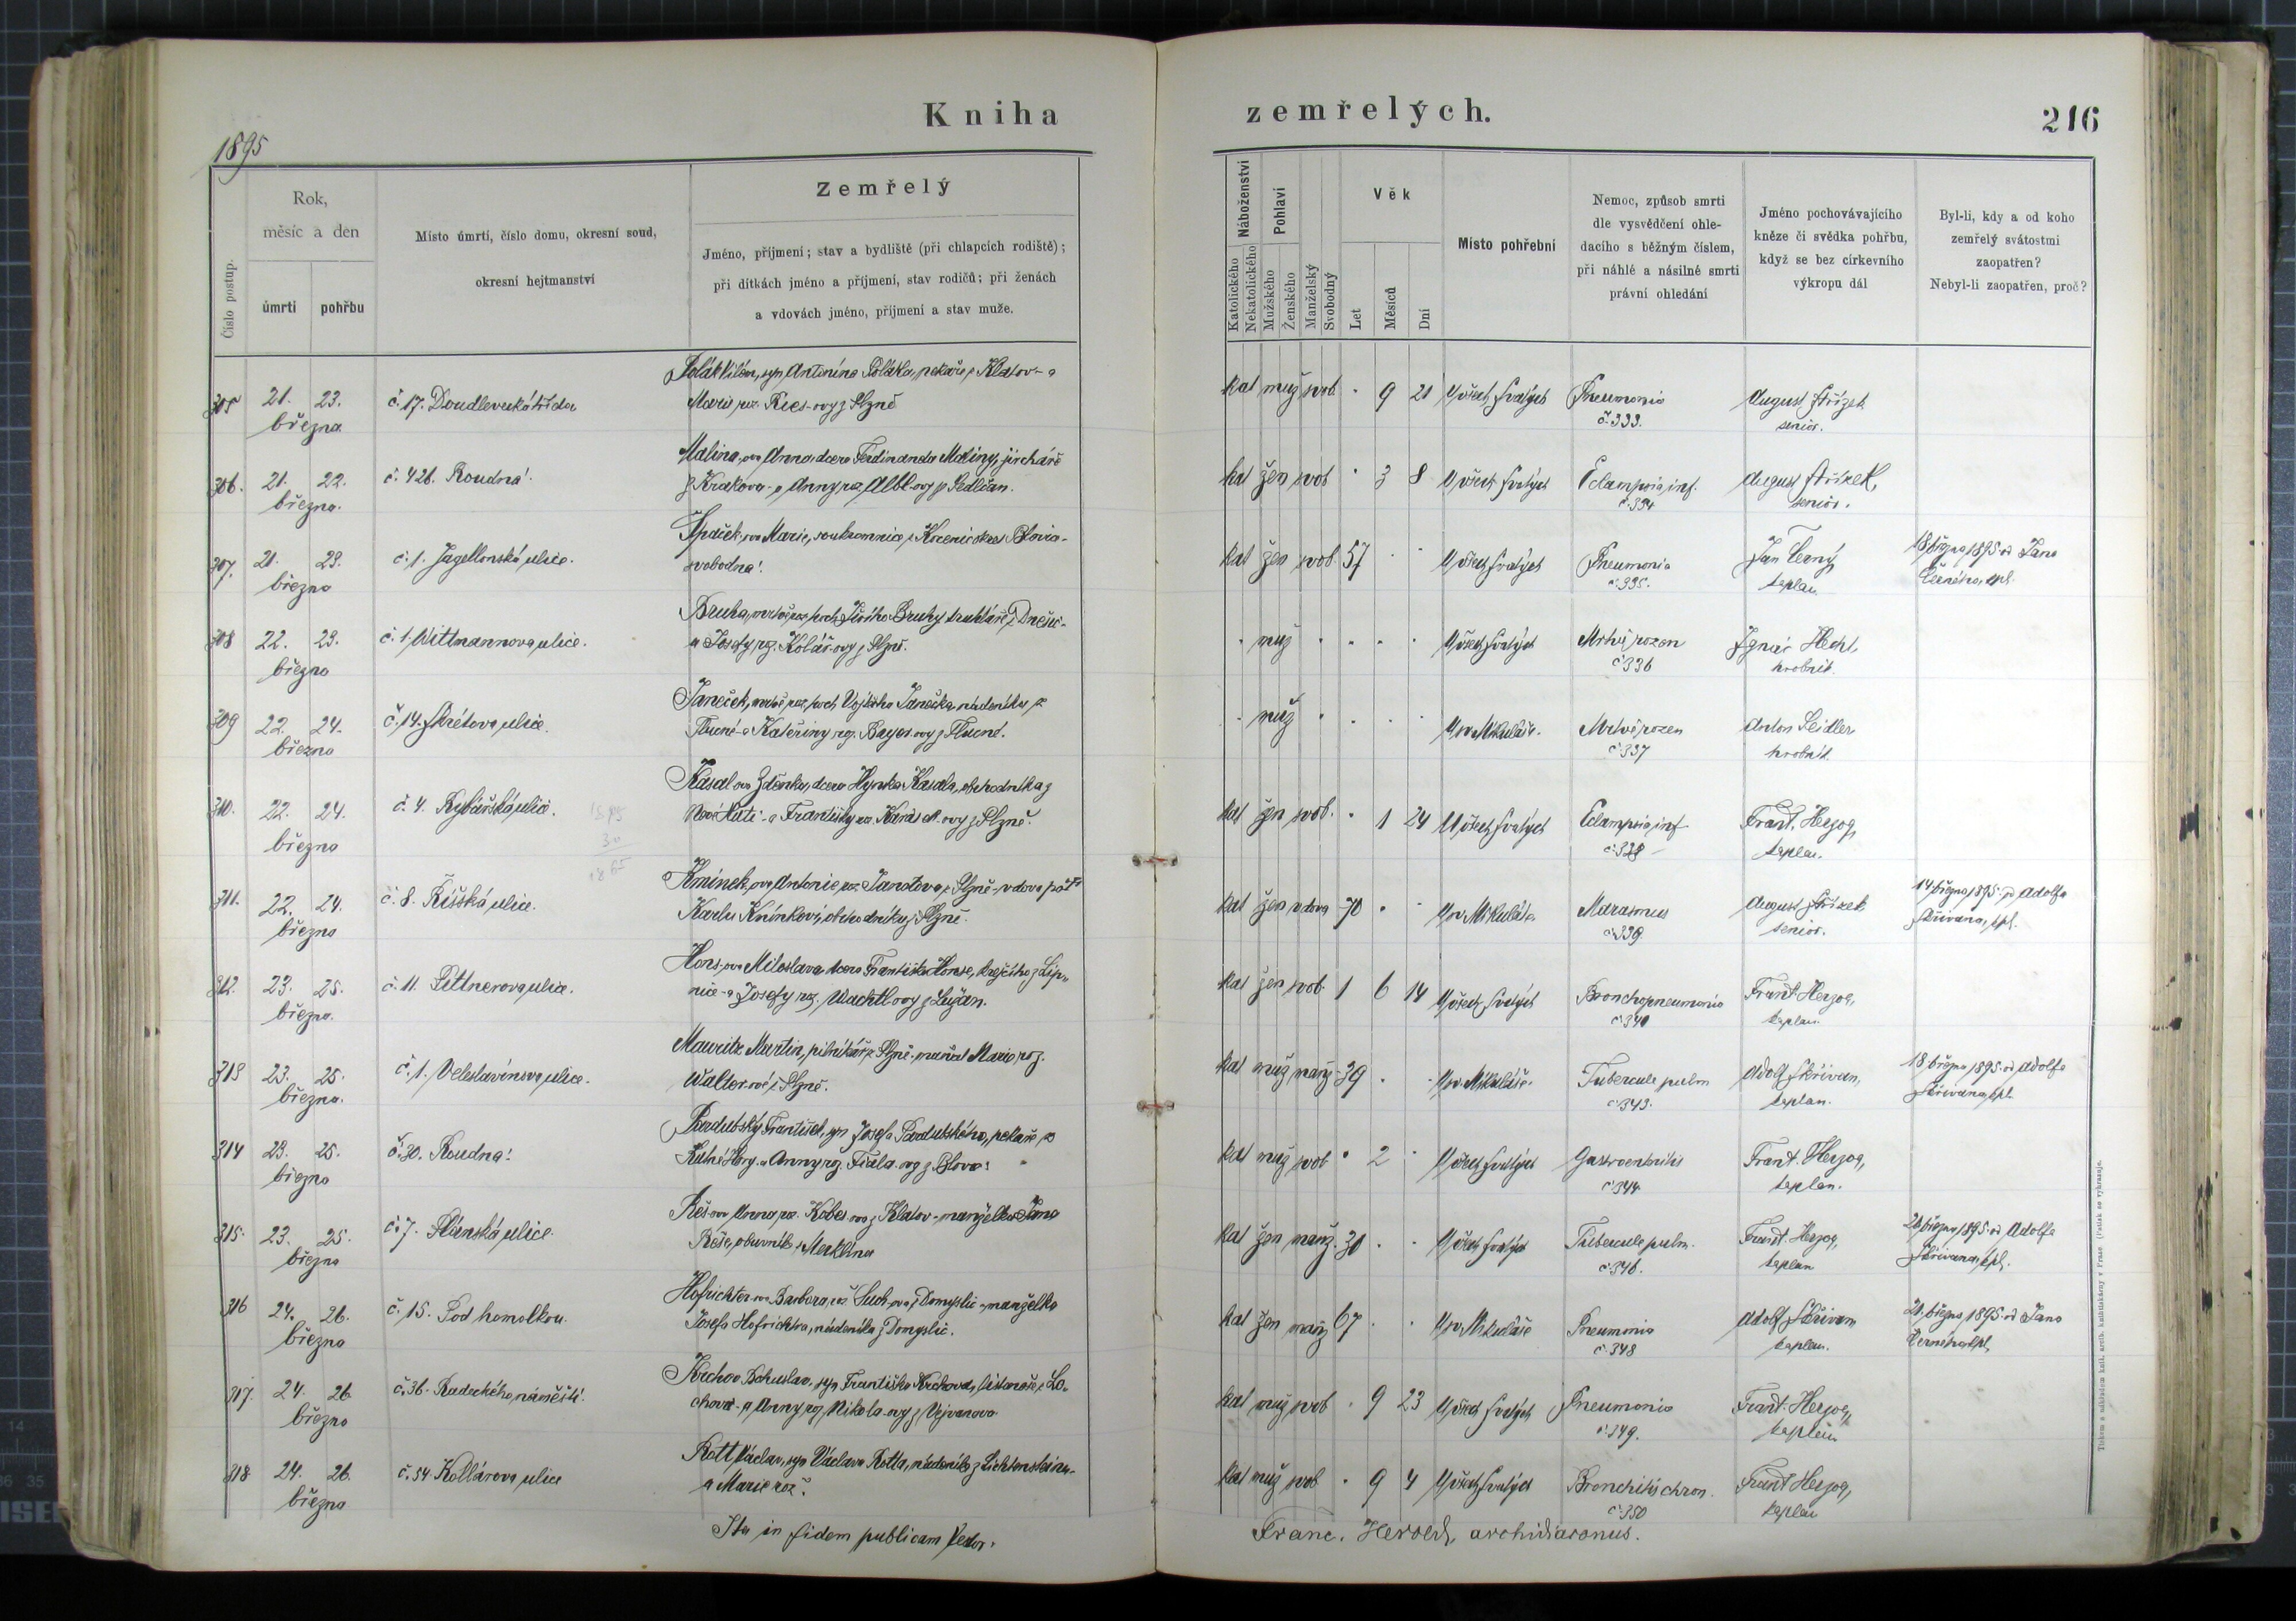 Kniha
1895
Číslo postup.
Rok,
měsíc a den
úmrtí pohřbu
Místo úmrtí, číslo domu, okresní soud,
okresní hejtmanství
Zemřelý
Jméno, příjmení; stav a bydliště (při chlapcích rodiště);
při dítkách jméno a příjmení, stav rodičů; při ženách
a vdovách jméno, příjmení a stav muže.
305 21. 23.
března
č. 17. Doudlevecká třída
Polák Vilém, syn Antonína Poláka, pekaře z Klatov- a
Marie roz. Kues-ovy z Plzně
306. 21. 22.
března.
č. 426. Roudná.
Malina-ova Anna, dcera Ferdinanda Maliny, jircháře
z Krakova- a Anny, roz. Albl-ovy z Sedlčan.
307. 21. 23.
března
č. 1. Jagellonská ulice.
Špaček-ova Marie, soukromnice z okres Blovice-
svobodná.
308 22. 23.
března
č. 1. Wittmannova ulice.
Bruha, mrtvě roz. hoch Jiřího Bruhy truhláře z
a Josefy, roz. Kolář-ovy z Plzně.
309 22. 24.
března
č. 14. Skrétova ulice.
Janeček, mrtvě roz. hoch Vojtěcha Janečka, nádeníka z
Tlucné- a Kateřiny roz. Bayer-ovy z Tlucné.
310. 22. 24.
března
č. 4. Rybářská ulice.
Kasal-ova Zdeňka, dcera Hynka Kasala, obchodníka z
Nové Huti- a Františky roz. Karásek-ovy z Plzně.
311. 22. 24.
března
č. 8. Říšská ulice.
Kmínek-ova Antonie roz. Janotova z Plzně- vdova po
Karlu Kmínkovi, obchodníku z Plzně.
312. 23. 25.
března.
č. 11. Pittnerova ulice.
Hons-ova Miloslava, dcera Františka Honse, krejčího z Lip-
nice- a Josefy roz. Wachtl-ovy z Lužan.
313 23. 25.
března.
č. 1. Veleslavínova ulice.
Mauritz Martin, pilnikář z Plzně- manžel Marie roz.
Walter-ové z Plzně.
314 23. 25.
března
č. 30. Roudná.
Pardubský František, syn Josefa Pardubského, pekaře z
Kutné Hory- a Anny roz. Fiala-ovy z
315. 23. 25.
března
č. 7. Plánská ulice.
Reš-ova Anna roz. Kobes-ova z Klatov- manželka Jana
Reše, obuvníka z Merklína
316 24. 26.
března
č. 15. Pod homolkou.
Hofrichter-ova Barbora, roz. Such-ova z Domyslic- manželka
Josefa Hofrichtra, nádeníka z Domyslic.
317. 24. 26.
března
č. 36. Radeckého náměstí.
Krchov Bohuslav, syn Františka Krchova, listonoše z Lo-
chova- a Anny roz. Nikola-ovy z Vejvanova
318 24. 26.
března
č. 54. Kollárova ulice
Rott Václav, syn Václava Rotta, nádeníka z Lichtensteinu-
a Marie roz.
Ita in fidem publicam
zemřelých.
216
Náboženství
Katolického
Nekatolického
Pohlaví
Mužského
Ženského
Manželský
Svobodný
Věk
Let
Měsíců
Dní
Místo pohřební
Nemoc, způsob smrti
dle vysvědčení ohle-
dacího s běžným číslem,
při náhlé a násilné smrti
právní ohledání
Jméno pochovávajícího
kněze či svědka pohřbu,
když se bez církevního
výkropu dál
Byl-li, kdy a od koho
zemřelý svátostmi
zaopatřen?
Nebyl-li zaopatřen, proč?
kat muž svob. . 9 21 U všech svatých Pneumonia
č. 333.
August Střízek
senior.
kat žen svob . 3 8 U všech svatých Eclampsia inf.
č. 334
August Střízek,
senior.
kat žen svob. 57 . . U všech svatých Pneumonia
č. 335.
Jan Černý,
kaplan
18. března 1895 od Jana
Černého, kpl.
. muž . . . . U všech svatých Mrtvě rozen
č 336
Ignác Hecht,
hrobník
. muž . . . . U sv. Mikuláše. Mrtvě rozen
č 337
Anton Seidler
hrobník
kat žen svob. . 1 24 U všech svatých Eclampsia inf.
č. 338
Frant. Herzog,
kaplan.
kat žen vdova 70 . . U sv. Mikuláše Marasmus
č. 339.
August Střízek
senior.
14. března 1895. od Adolfa
Skřivana, kpl.
kat žen svob. 1 6 14 U všech svatých Bronchopneumonia
č. 340
Frant. Herzog,
kaplan.
kat muž manž. 39 . . U sv. Mikuláše. Tubercule pulm
č. 343.
Adolf Skřivan,
kaplan.
18. března 1895. od Adolfa
Skřivana, kpl
kat muž svob . 2 . U všech svatých Gastroenteritis
č. 344
Frant. Herzog,
kaplan.
kat žen manž. 30 . . U všech svatých Tubercule pulm.
č. 346.
Frant. Herzog,
kaplan
března 1895. od Adolfa
Skřivana, kpl.
kat žen manž 67 . . U sv. Mikuláše Pneumonia
č. 348
Adolf Skřivan
kaplan.
21. března 1895. od Jana
Černého, kpl.
kat muž svob . 9 23 U všech svatých Pneumonia
č. 349.
Frant. Herzog,
kaplan
kat muž svob . 9 4 U všech svatých Bronchitis chron.
č. 350
Frant. Herzog,
kaplan
Franc. Herold, archidiaconus.